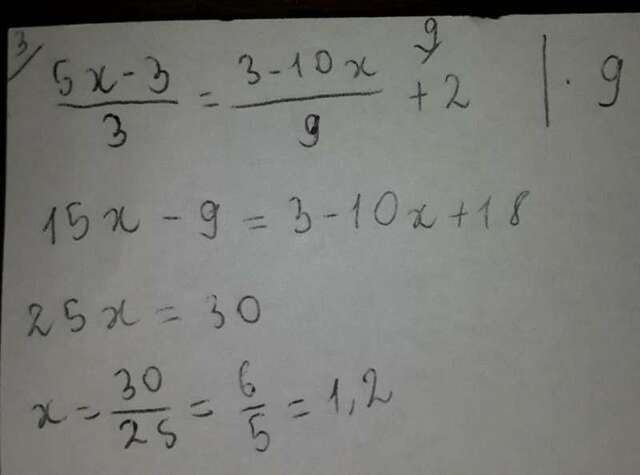 3/ (5x-3)/3 = (3-10x)/9 + 2 | · 9
9
15x - 9 = 3 - 10x + 18
25x = 30
x = 30/25 = 6/5 = 1,2